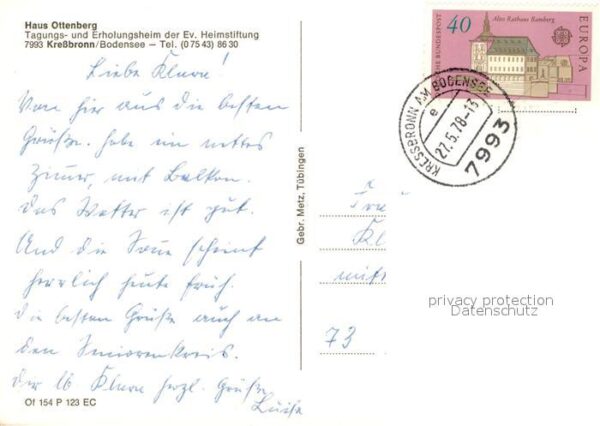 Haus Ottenberg
Tagungs- und Erholungsheim der Ev. Heimstiftung
7993 Kreßbronn/Bodensee — Tel. (0 75 43) 86 30
Liebe Klara!
Von hier aus die besten
Grüße. habe ein nettes
Zimmer, mit Balkon.
das Wetter ist gut.
Und die Sonne scheint
herrlich heute früh.
die besten Grüße auch an
den Seniorenkreis.
der lb Klara herzl. Grüße
Luise
Of 154 P 123 EC
Gebr. Metz, Tübingen
40
Altes Rathaus Bamberg
DEUTSCHE BUNDESPOST
EUROPA
KRESSBRONN AM BODENSEE
e
27.5.78-13
7993
Frau
Kl
73
privacy protection
Datenschutz